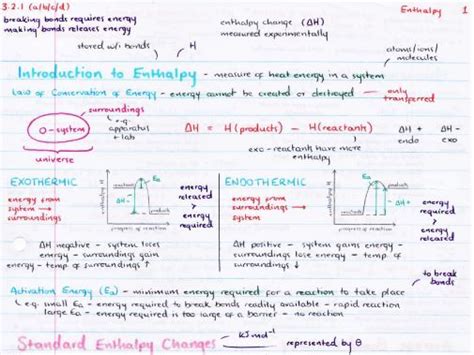 3.2.1 (a/b/c/d)
Enthalpy 1
breaking bonds requires energy
making bonds releases energy
enthalpy change (ΔH)
measured experimentally
stored w/i bonds
H
atoms/ions/
molecules
Introduction to Enthalpy - measure of heat energy in a system
Law of Conservation of Energy - energy cannot be created or destroyed → only
transferred
surroundings
O-system
e.g.
apparatus
+ lab
universe
ΔH = H(products) - H(reactants)
ΔH + ΔH -
endo exo
exo - reactants have more
enthalpy
EXOTHERMIC
energy from
system →
surroundings
enthalpy H
reactants
Ea
ΔH -
products
progress of reaction
energy
released
>
energy
required
ENDOTHERMIC
energy from
surroundings
→ system
enthalpy H
products
Ea
ΔH +
reactants
progress of reaction
energy
required
>
energy
released
ΔH negative - system loses
energy - surroundings gain
energy - temp of surroundings ↑
ΔH positive - system gains energy -
surroundings lose energy - temp. of
surroundings ↓
to break
bonds
Activation Energy (Ea) - minimum energy required for a reaction to take place
e.g. small Ea - energy required to break bonds readily available - rapid reaction
large Ea - energy required is too large of a barrier - no reaction
Standard Enthalpy Changes
kJmol⁻¹
represented by θ